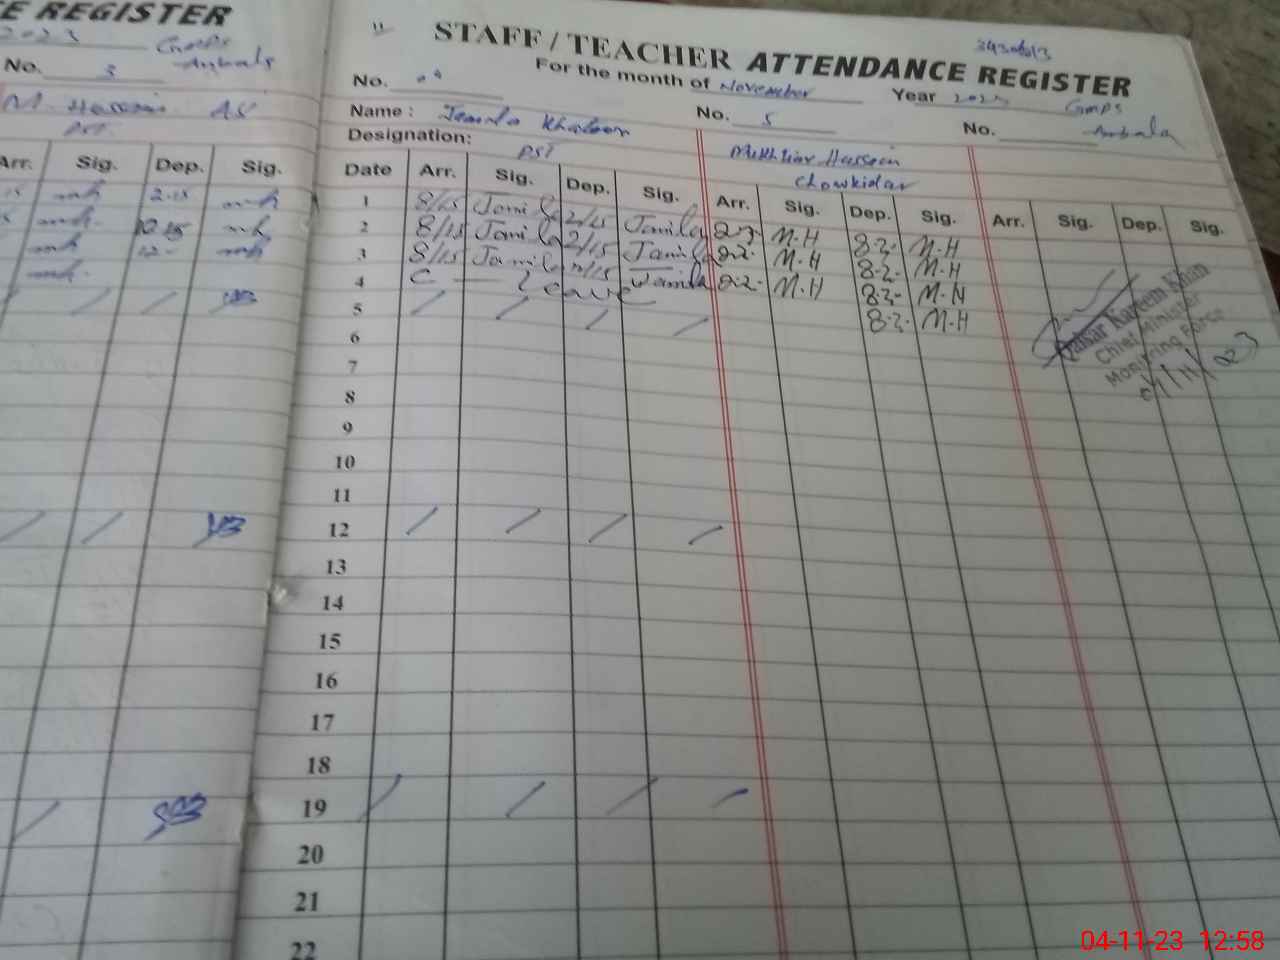 E REGISTER
2023 Gmps
No. 3 Ambala
M. Hassain
PST
Arr. Sig. Dep. Sig.
mh 2.15 mh
mh 10.15 mh
mh 12 mh
mh
STAFF / TEACHER ATTENDANCE REGISTER
For the month of November Year 2023 Gmps
No. No. 5 No. Ambala
Name : Jamila Khatoon
Mukhtiar Hussain
Designation: PST
Chowkidar
Date Arr. Sig. Dep. Sig. Arr. Sig. Dep. Sig. Arr. Sig. Dep. Sig.
1 8/15 Jamila 2/15 Jamila M.H 8.2. M.H
2 8/15 Jamila 2/15 Jamila M.H 8.2. M.H
3 8/15 Jamila Jamila M.H 8.2. M.H
4 C — leave M.H
8.2. M.H
5 / / / /
6
7
8
9
10
11
12 / / / /
13
14
15
16
17
18
19 / / / /
20
21
22
Kareem Khan
Chief Minister
Monitoring Force
04/11/023
04-11-23 12:58